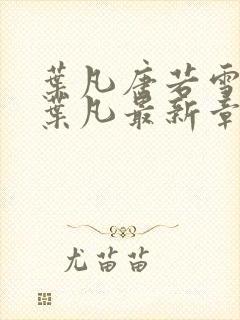 葉凡唐若雪
葉凡最新章
尤苗苗